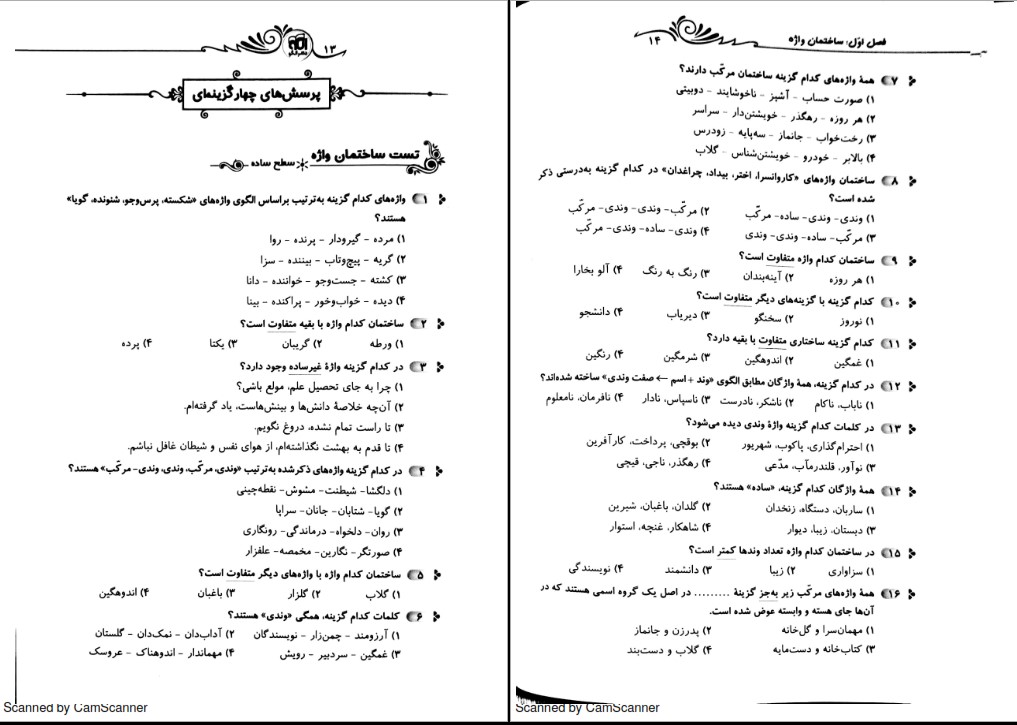 ۱۳
پرسش‌های چهارگزینه‌ای
تست ساختمان واژه
سطح ساده
۱ واژه‌های کدام گزینه به‌ترتیب براساس الگوی واژه‌های «شکسته، پرس‌وجو، شنونده، گویا»
هستند؟
۱) مرده - گیرودار - پرنده - روا
۲) گریه - پیچ‌وتاب - بیننده - سزا
۳) کشته - جست‌وجو - خواننده - دانا
۴) دیده - خواب‌وخور - پراکنده - بینا
۲ ساختمان کدام واژه با بقیه متفاوت است؟
۱) ورطه ۲) گریبان ۳) یکتا ۴) پرده
۳ در کدام گزینه واژهٔ غیرساده وجود دارد؟
۱) چرا به جای تحصیل علم، مولع باشی؟
۲) آن‌چه خلاصهٔ دانش‌ها و بینش‌هاست، یاد گرفته‌ام.
۳) تا راست تمام نشده، دروغ نگویم.
۴) تا قدم به بهشت نگذاشته‌ام، از هوای نفس و شیطان غافل نباشم.
۴ در کدام گزینه واژه‌های ذکرشده به‌ترتیب «وندی، مرکّب، وندی، وندی- مرکّب» هستند؟
۱) دلگشا- شیطنت- مشوش- نقطه‌چینی
۲) گویا- شتابان- جانان- سراپا
۳) روان- دلخواه- درماندگی- رونگاری
۴) صورتگر- نگارین- مخمصه- علفزار
۵ ساختمان کدام واژه با واژه‌های دیگر متفاوت است؟
۱) گلاب ۲) گلزار ۳) باغبان ۴) اندوهگین
۶ کلمات کدام گزینه، همگی «وندی» هستند؟
۱) آرزومند - چمن‌زار - نویسندگان ۲) آداب‌دان - نمک‌دان - گلستان
۳) غمگین - سردبیر - رویش ۴) مهماندار - اندوهناک - عروسک
Scanned by CamScanner
فصل اوّل: ساختمان واژه
۱۴
۷ همهٔ واژه‌های کدام گزینه ساختمان مرکّب دارند؟
۱) صورت حساب - آشپز - ناخوشایند - دوبیتی
۲) هر روزه - رهگذر - خویشتن‌دار - سراسر
۳) رخت‌خواب - جانماز - سه‌پایه - زودرس
۴) بالابر - خودرو - خویشتن‌شناس - گلاب
۸ ساختمان واژه‌های «کاروانسرا، اختر، بیداد، چراغدان» در کدام گزینه به‌درستی ذکر
شده است؟
۱) وندی- وندی- ساده- مرکّب ۲) مرکّب- وندی- وندی- مرکّب
۳) مرکّب- ساده- وندی- وندی ۴) وندی- ساده- وندی- مرکّب
۹ ساختمان کدام واژه متفاوت است؟
۱) هر روزه ۲) آینه‌بندان ۳) رنگ به رنگ ۴) آلو بخارا
۱۰ کدام گزینه با گزینه‌های دیگر متفاوت است؟
۱) نوروز ۲) سخنگو ۳) دیریاب ۴) دانشجو
۱۱ کدام گزینه ساختاری متفاوت با بقیه دارد؟
۱) غمگین ۲) اندوهگین ۳) شرمگین ۴) رنگین
۱۲ در کدام گزینه، همهٔ واژگان مطابق الگوی «وند + اسم ← صفت وندی» ساخته شده‌اند؟
۱) ناباب، ناکام ۲) ناشکر، نادرست ۳) ناسپاس، نادار ۴) نافرمان، نامعلوم
۱۳ در کلمات کدام گزینه واژهٔ وندی دیده می‌شود؟
۱) احترام‌گذاری، پاکوب، شهریور ۲) بوقچی، پرداخت، کارآفرین
۳) نوآور، قلندرمآب، مدّعی ۴) رهگذر، ناجی، قیچی
۱۴ همهٔ واژگان کدام گزینه، «ساده» هستند؟
۱) ساربان، دستگاه، زنخدان ۲) گلدان، باغبان، شیرین
۳) دبستان، زیبا، دیوار ۴) شاهکار، غنچه، استوار
۱۵ در ساختمان کدام واژه تعداد وندها کمتر است؟
۱) سزاواری ۲) زیبا ۳) دانشمند ۴) نویسندگی
۱۶ همهٔ واژه‌های مرکّب زیر به‌جز گزینهٔ ......... در اصل یک گروه اسمی هستند که در
آن‌ها جای هسته و وابسته عوض شده است.
۱) مهمان‌سرا و گل‌خانه ۲) پدرزن و جانماز
۳) کتاب‌خانه و دست‌مایه ۴) گلاب و دست‌بند
Scanned by CamScanner